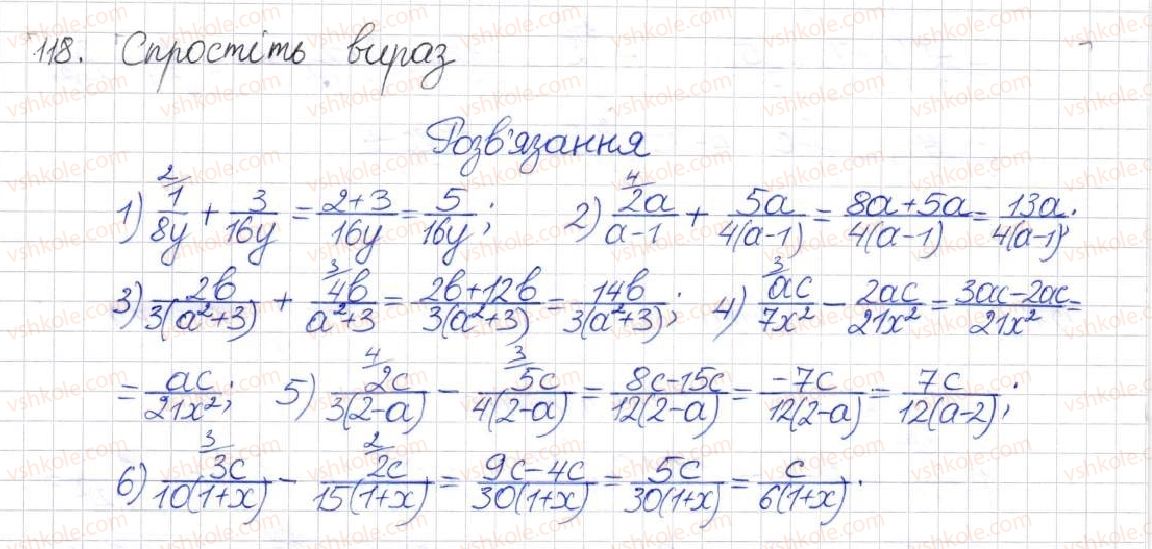 118. Спростіть вираз
Розв'язання
1) 2/ 1/8y + 3/16y = (2+3)/16y = 5/16y; 2) 4/ 2a/(a-1) + 5a/4(a-1) = (8a+5a)/4(a-1) = 13a/4(a-1).
3) 2b/3(a²+3) + 3/ 4b/(a²+3) = (2b+12b)/3(a²+3) = 14b/3(a²+3); 4) 3/ ac/7x² - 2ac/21x² = (3ac-2ac)/21x² =
= ac/21x²; 5) 4/ 2c/3(2-a) - 3/ 5c/4(2-a) = (8c-15c)/12(2-a) = -7c/12(2-a) = 7c/12(a-2);
6) 3/ 3c/10(1+x) - 2/ 2c/15(1+x) = (9c-4c)/30(1+x) = 5c/30(1+x) = c/6(1+x).
vshkole.com